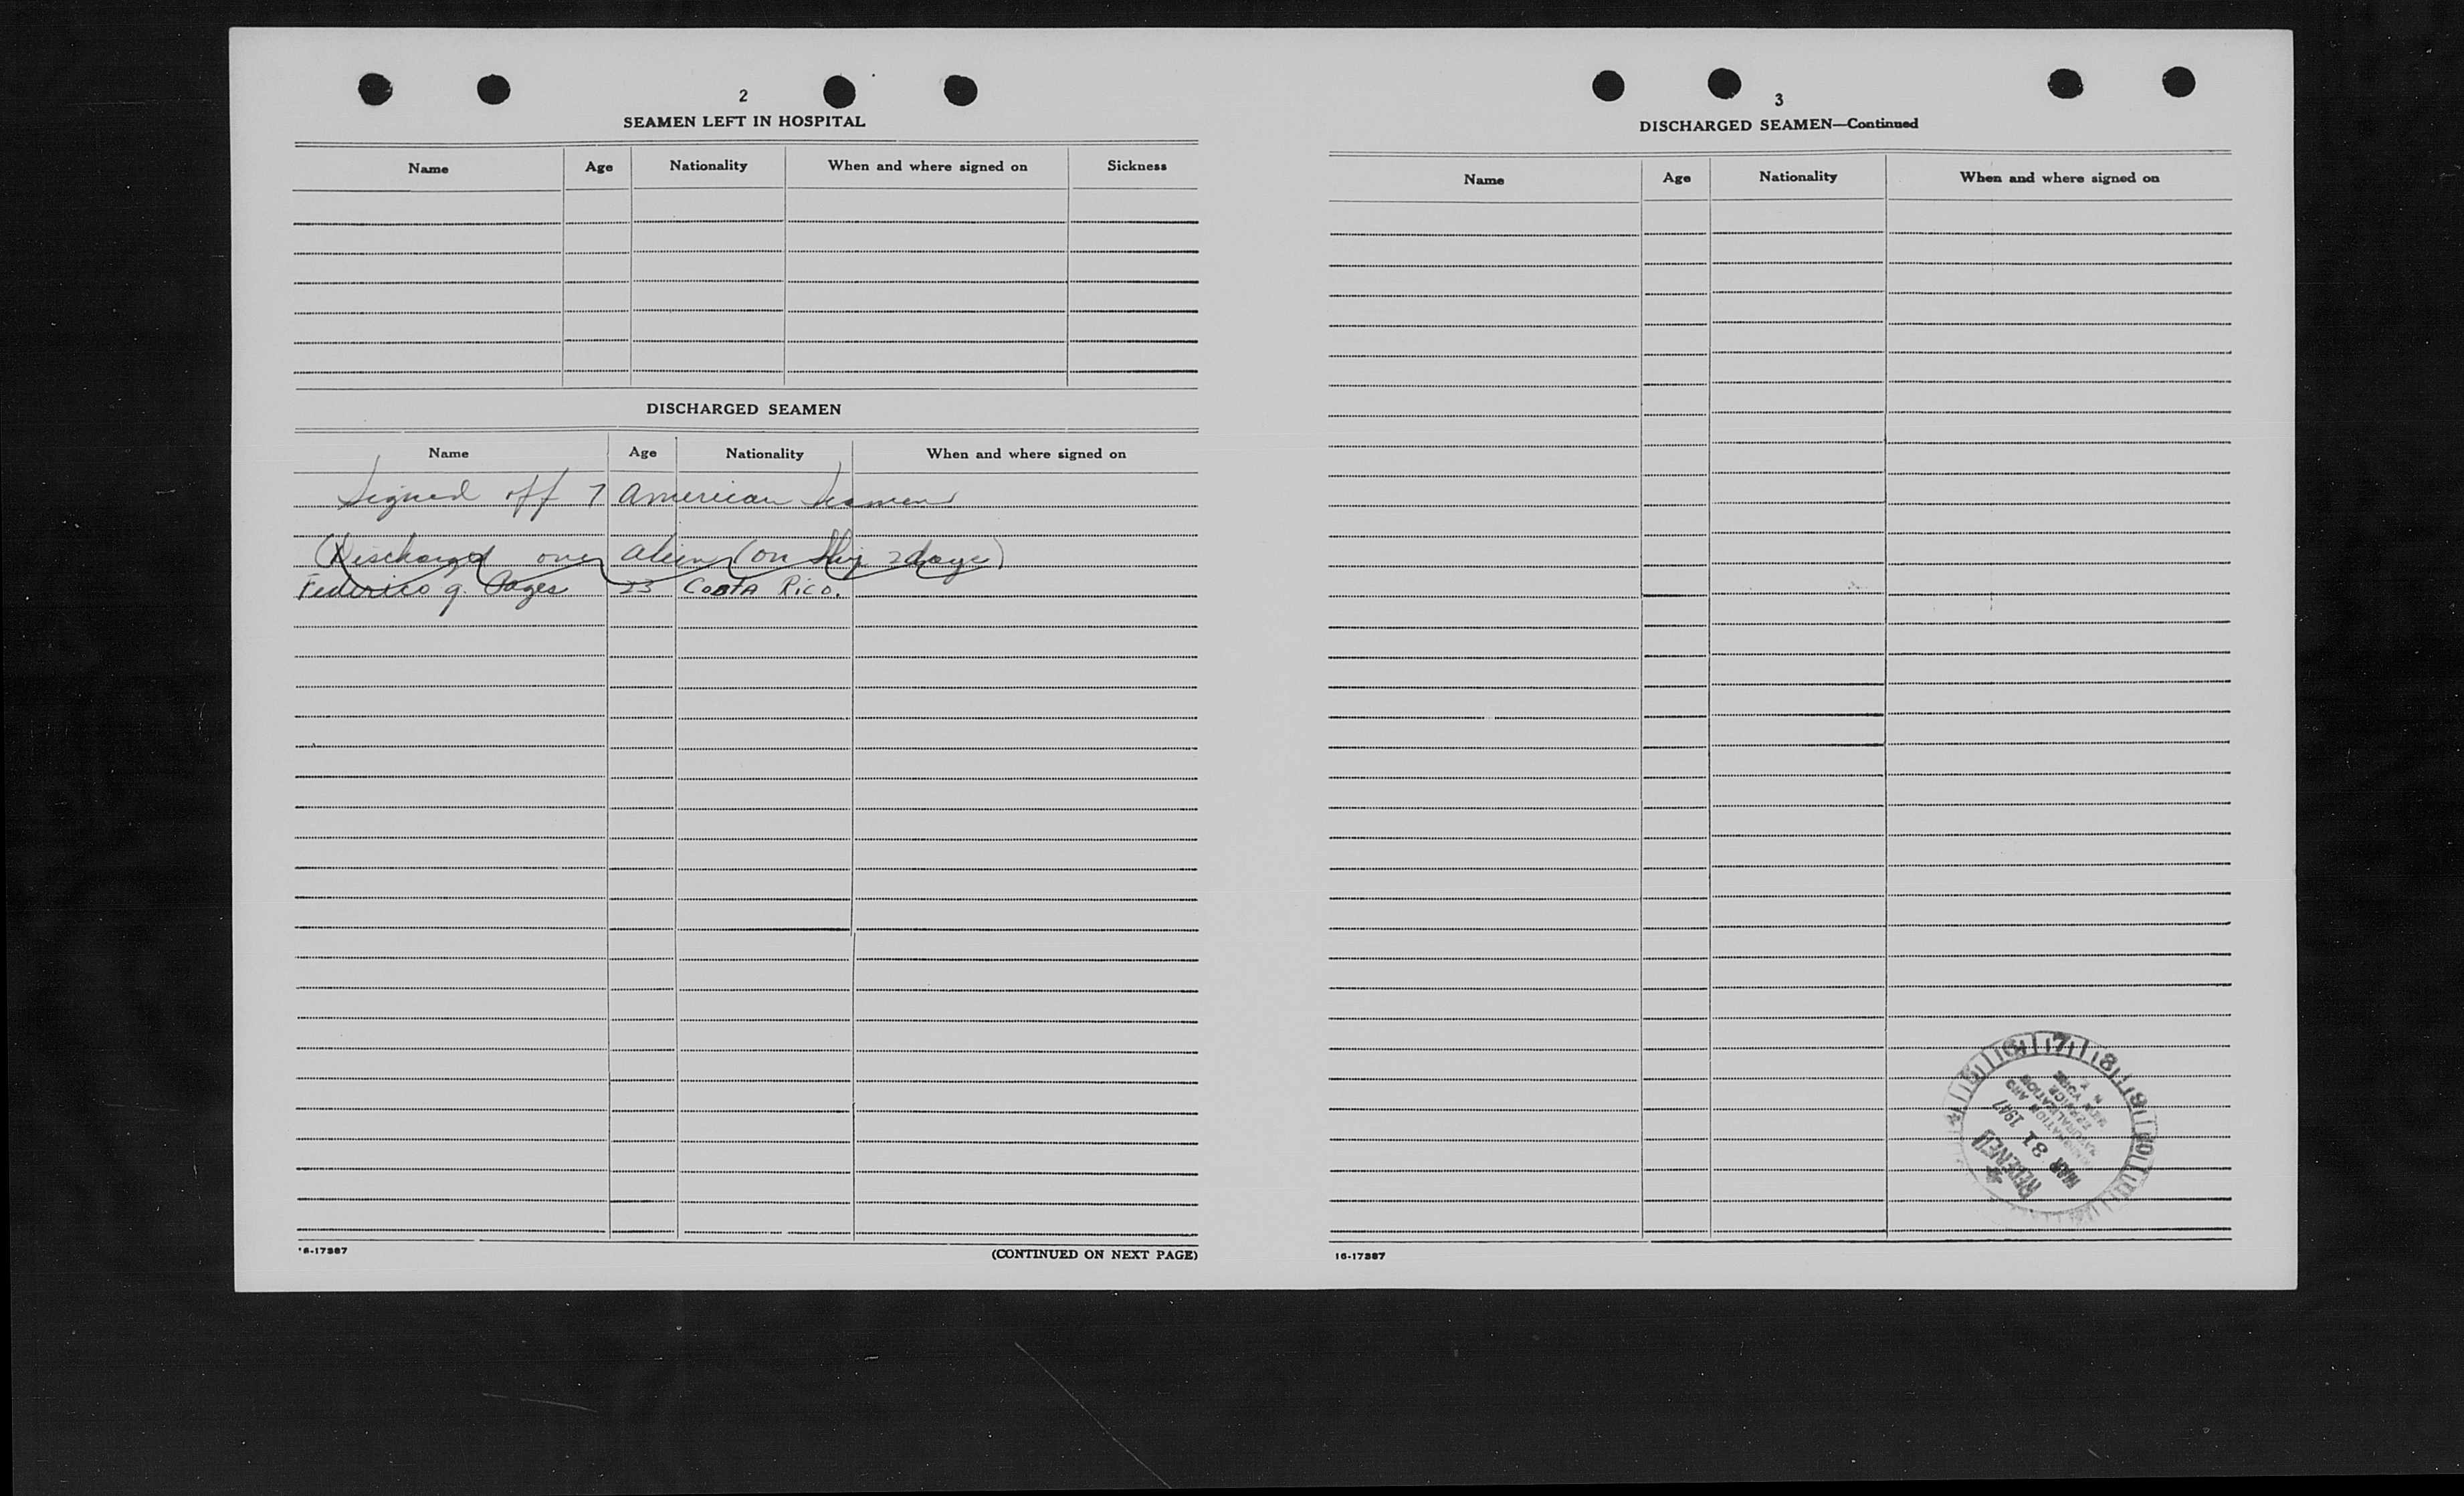 2
SEAMEN LEFT IN HOSPITAL
Name Age Nationality When and where signed on Sickness
DISCHARGED SEAMEN
Name Age Nationality When and where signed on
Signed off 7 American Seamen
(Discharged one alien (on ship 2 days)
Federico g. Pages 23 Costa Rico.
16-17387
(CONTINUED ON NEXT PAGE)
3
DISCHARGED SEAMEN—Continued
Name Age Nationality When and where signed on
5 6 7 8 9 10 11
RECEIVED
MAR 31 1947
IMMIGRATION AND
NATURALIZATION
SERVICE
NEW YORK
N Y
16-17387